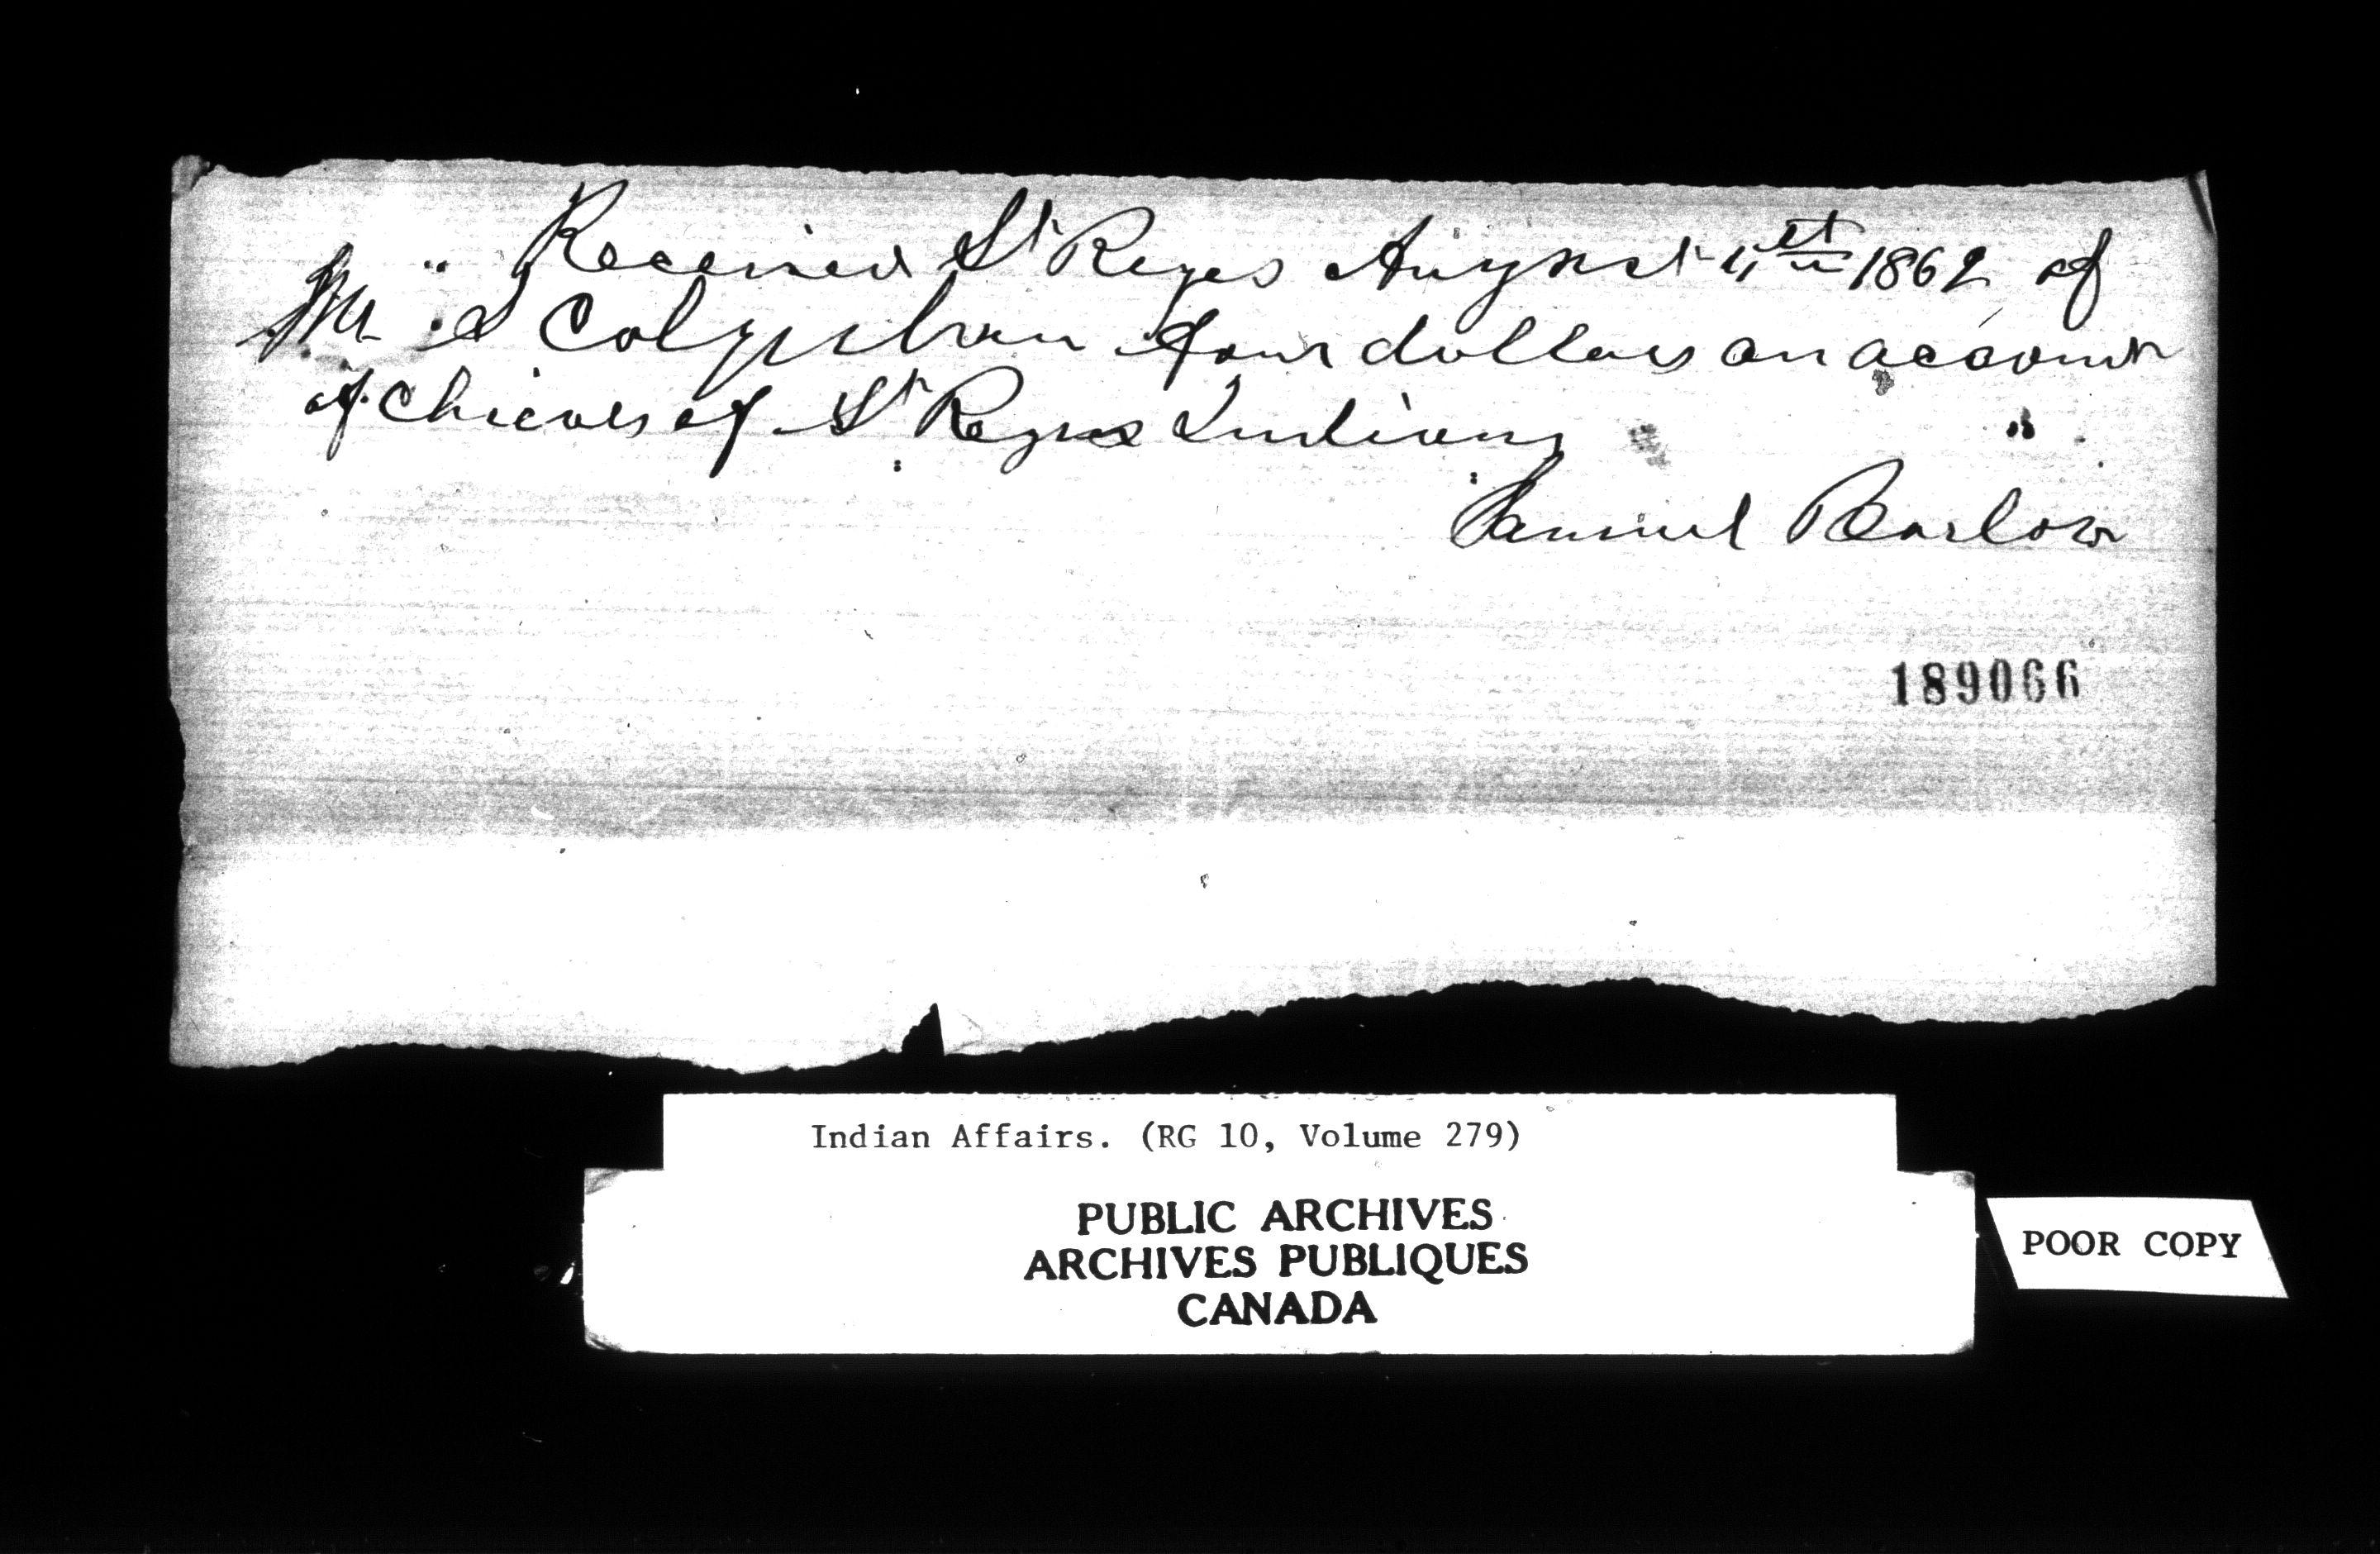 Received St Regis August 1862 of
Mr S Colquhoun four dollars on account
of Chieves of St Regis Indians
Samuel Barlow
189066
Indian Affairs. (RG 10, Volume 279)
PUBLIC ARCHIVES
ARCHIVES PUBLIQUES
CANADA
POOR COPY